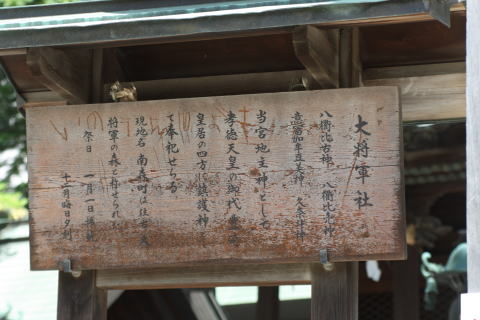 大将軍社
八衢比古神 八衢比売神
意富加牟豆美神 久那斗神
当宮地主神として
孝徳天皇の御代
皇居の四方に鎮護神
て奉祀せらる
現地名 南森町は往古
将軍の森と称せられ
祭日 一月一日
十二月晦日夕刻